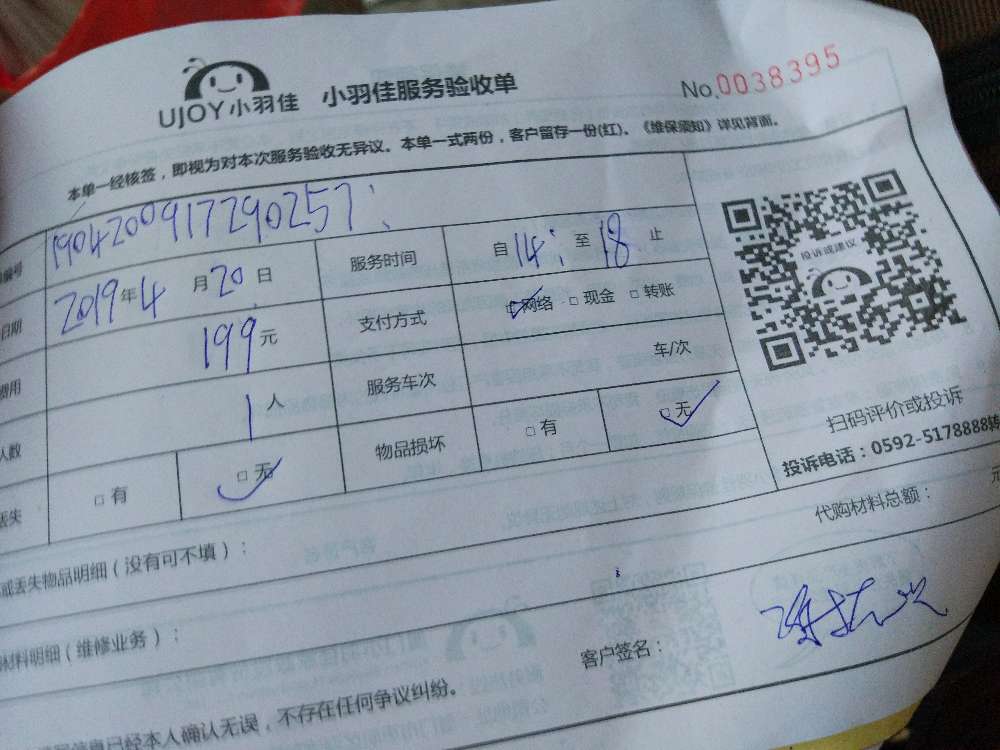 UJOY小羽佳 小羽佳服务验收单 No.0038395
本单一经核签，即视为对本次服务验收无异议。本单一式两份，客户留存一份(红)。《维保须知》详见背面。
编号 1904200917290257
日期 2019年4月20日 服务时间 自14:至18止
费用 199元 支付方式 □网络 □现金 □转账
人数 1人 服务车次 车/次
丢失 □有 □无 物品损坏 □有 □无
投诉或建议
扫码评价或投诉
投诉电话：0592-5178888转
或丢失物品明细（没有可不填）： 代购材料总额： 元
材料明细（维修业务）：
客户签名：
信息已经本人确认无误，不存在任何争议纠纷。